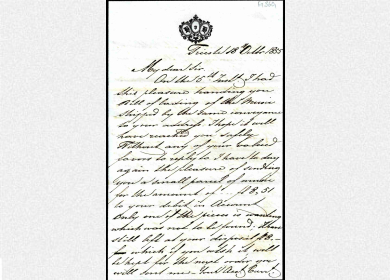 Trieste 18 Octbr 1885
My dear Sir.
On the 5th Inst. I had
this pleasure handing you
Bill of lading of the Music
shipped by the same conveyance
to your address I hope it will
have reached you safely
Without any of your
favors to reply to I have to day
again the pleasure of sending
you a small parcel of music
for the amount of f 8,51
to your debit in Account
Only one of the pieces is wanting
which was not to be found. I have
still left at your disposal f 8.-
for which if you wish it will
be kept for the next order you
will send me